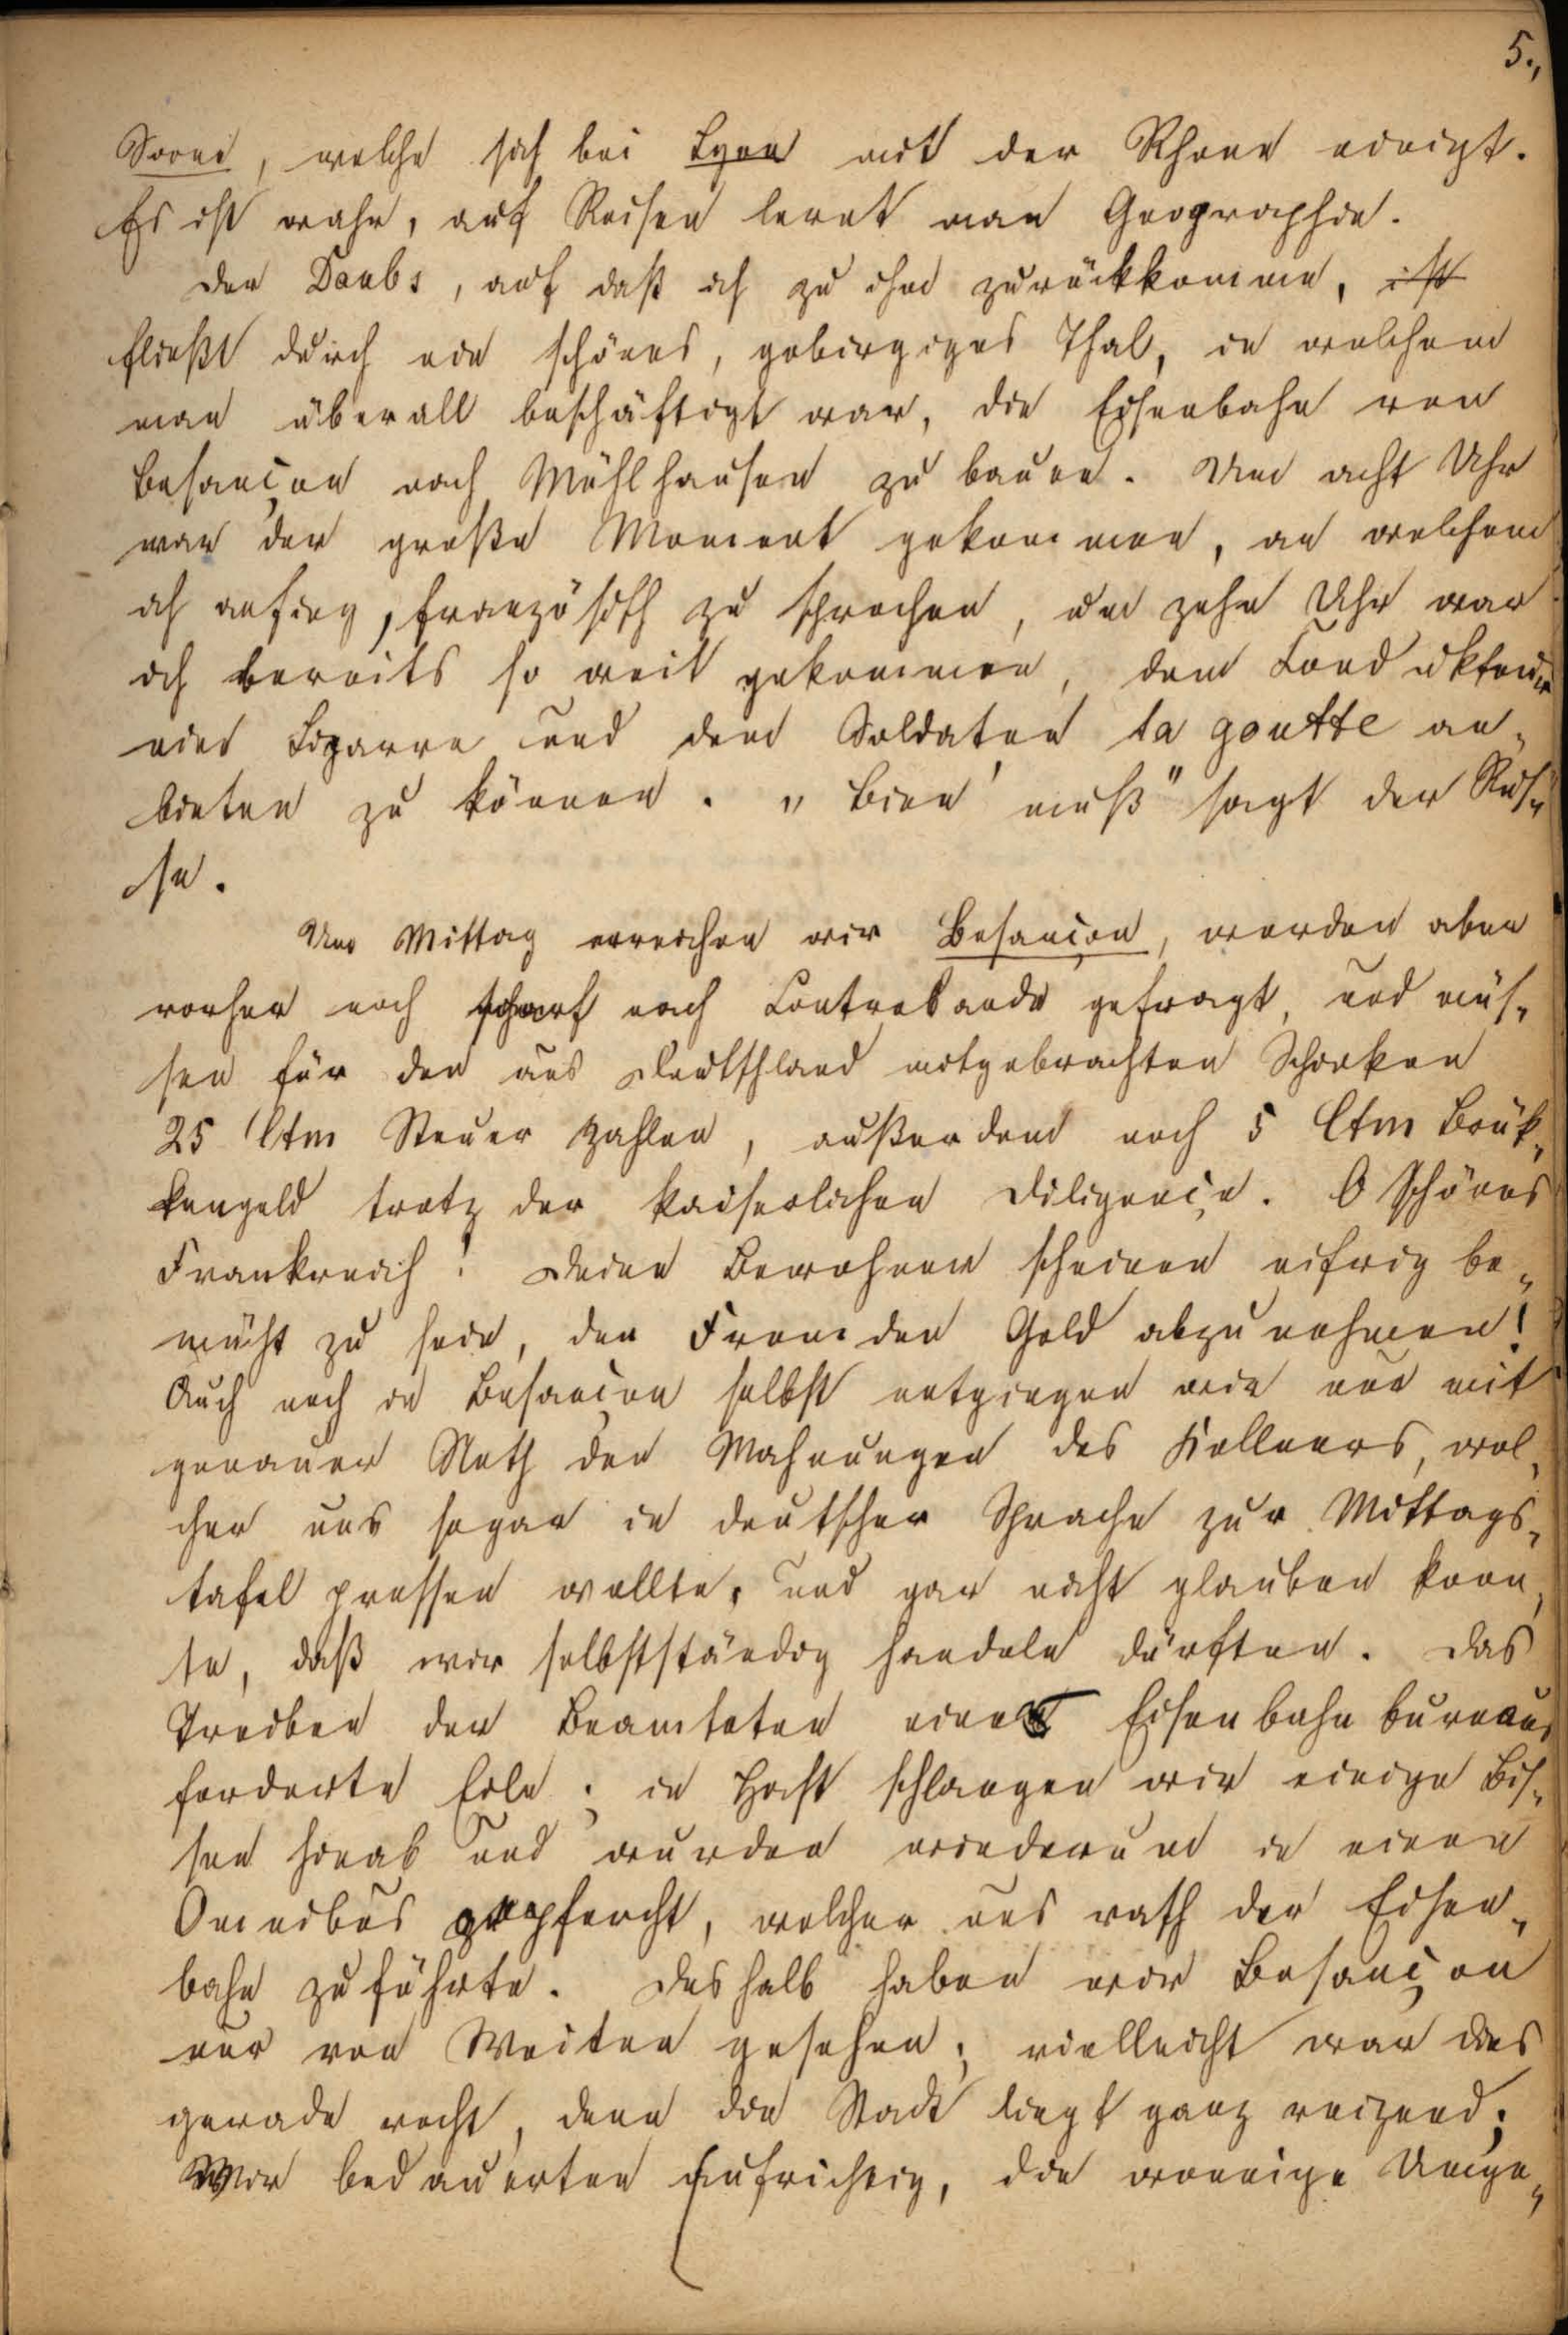 5.,
Sone, welche sich bei Lyon mit der Rhone einigt.
Es ist wahr, auf Reisen lernt man Geographie.
Der Doubs, auf daß ich zu ihm zurückkomme, ist
fließt durch ein schönes, gebirgiges Thal, in welchem
man überall beschäftigt war, die Eisenbahn von
Besançon nach Mühlhausen zu bauen. Um acht Uhr
war der große Moment gekommen, an welchem
ich anfing, französisch zu sprechen, um zehn Uhr war
ich bereits so weit gekommen, dem Conducteur
eine Cigarre und dem Soldaten la goutte an-
bieten zu können. „Bien muß" sagt der Rus-
se.
Um Mittag erreichen wir Besançon, werden aber
vorher noch scharf nach Contrebande gefragt, und müs-
sen für den aus Deutschland mitgebrachten Schinken
25 Ctm Steuer zahlen, außerdem noch 5 Ctm Brük-
kengeld trotz der kaiserlichen Diligençe. O schönes
Frankreich! Deine Bewohner scheinen eifrig be-
müht zu sein, den Fremden Geld abzunehmen!
Auch noch in Besançon selbst entgingen wir nur mit
genauer Noth den Mahnungen des Kellners, wel-
cher uns sogar in deutscher Sprache zur Mittags-
tafel pressen wollte, und gar nicht glauben konn-
te, daß wir selbstständig handeln dürften. Das
Treiben der Beamteten eines Eisenbahnbureaus
forderte Eile; in Hast schlangen wir einige Bis-
sen hinab und wurden wiederum in einen
Omnibus gepfercht, welcher uns rasch der Eisen-
bahn zuführte. Deshalb haben wir Besançon
nur von Weiten gesehen; vielleicht war dies
gerade recht, denn die Stadt liegt ganz reizend;
Wir bedauerten aufrichtig, die wonnige Umge-